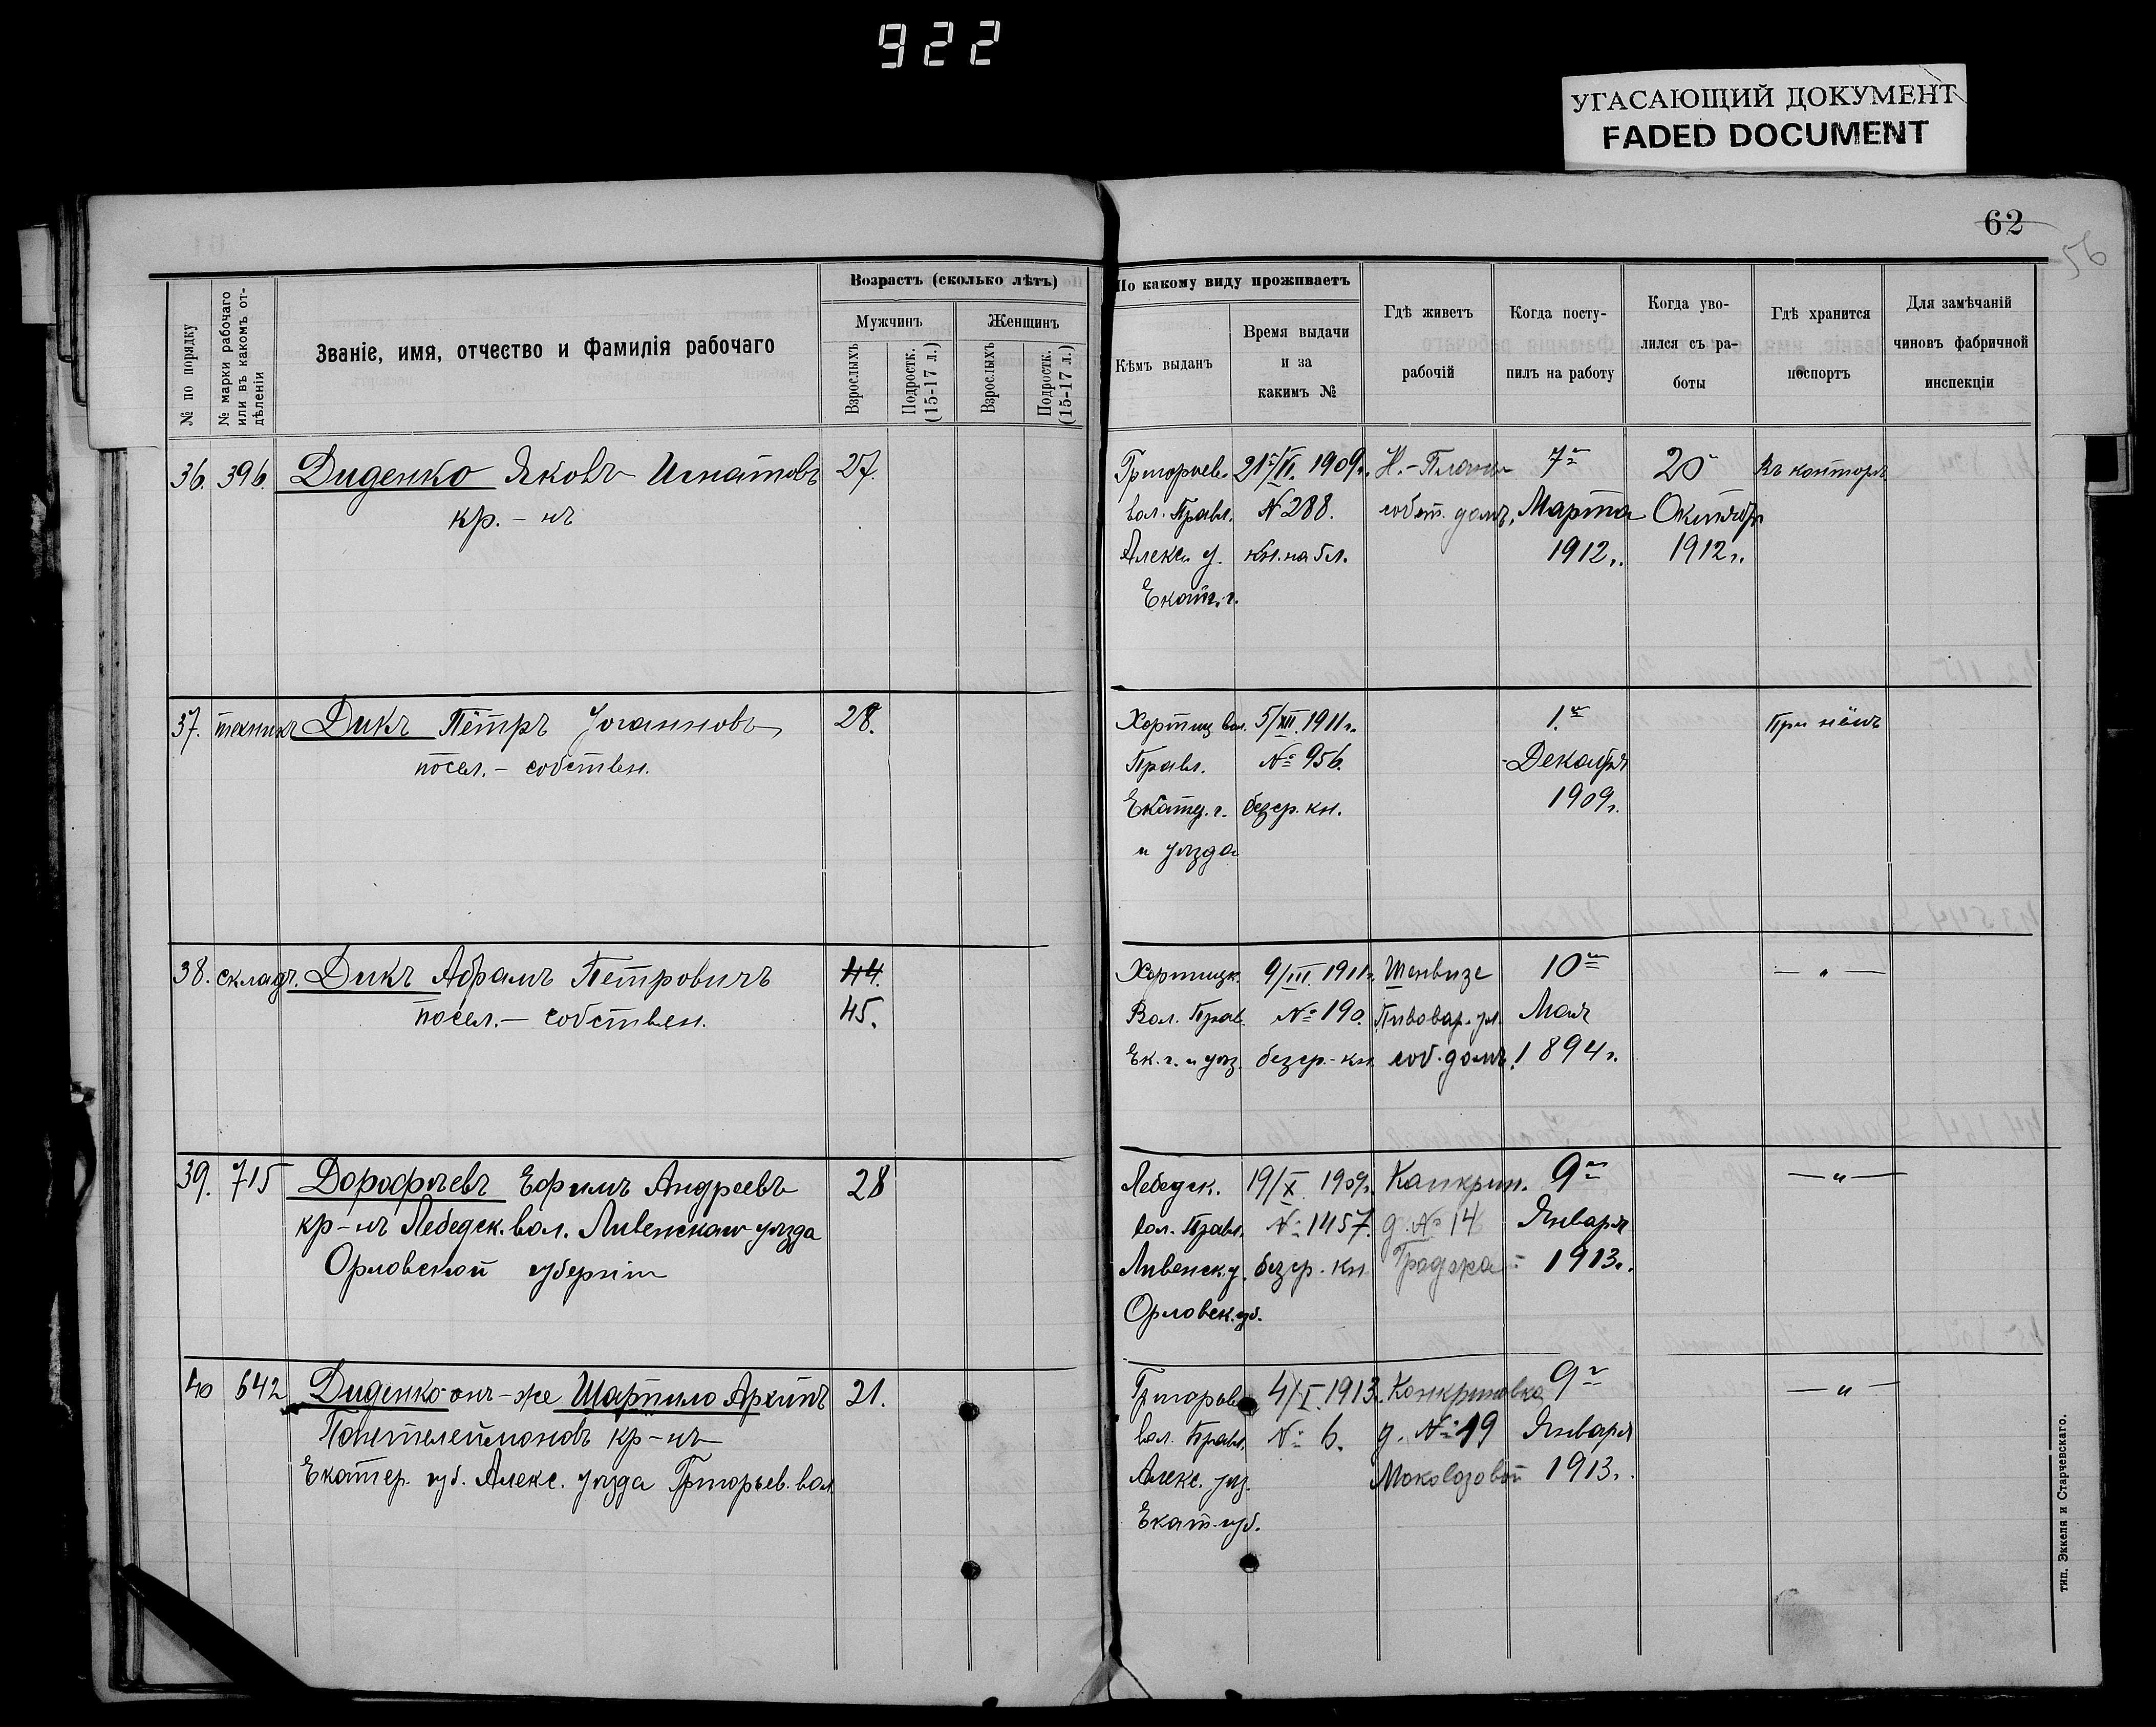 922
УГАСАЮЩИЙ ДОКУМЕНТ
FADED DOCUMENT
62
56
№ по порядку
№ марки рабочаго или въ какомъ от-дѣленіи
Званіе, имя, отчество и Фамилія рабочаго
Возрастъ (сколько лѣтъ)
Мужчинъ
Женщинъ
Взрослыхъ
Подростк. (15-17 л.)
Взрослыхъ
Подростк. (15-17 л.)
По какому виду проживаетъ
Кѣмъ выданъ
Время выдачи и за какимъ №
Гдѣ живетъ рабочій
Когда посту-пилъ на работу
Когда уво-лился съ ра-боты
Гдѣ хранится паспортъ
Для замѣчаній чиновъ фабричной инспекціи
36. 396. Диденко Яковъ Игнатовъ 27.
кр.-нъ
Григорьев. 21/II. 1909г. Н.-Планъ 7го 20 Въ конторѣ
вол. Правл. №288. собст. домъ, Марта Октября
Алекс. у. кн. на 5 л. 1912г. 1912г.
Екат. г.
37. техникъ Дикъ Пётръ Іоганновъ 28.
посел.- собствен.
Хортиц вол. 5/XII. 1911г. 1го При нёмъ
Правл. №956. Декабря
Екатер. г. безср. кн. 1909г.
и уѣзда
38. складъ. Дикъ Абрамъ Петровичъ 44.
посел.- собствен. 45.
Хортицк. 9/III. 1911г. Шенвизе 10го — „ —
Вол. Прав. №190. Пивовар. ул. Мая
Ек. г. и уѣз. безср.-кн. соб. домъ. 1894г.
39. 715 Дорофѣевъ Ефимъ Андреевъ 28
кр-нъ Лебедск. вол. Ливенскаго уѣзда
Орловской губерніи
Лебедск. 19/X. 1909г. Канкрин. 9го — „ —
вол. Правл. №1457. д. №14 Января
Ливенск. у. безср. кн. 1913г.
Орловск. губ.
40 642 Диденко-онъ-же Шаршило Архипъ 21.
Пантелеймоновъ кр-нъ
Екатер. губ. Алекс. уѣзда Григорьев. вол.
Григорьев. 4/I. 1913г. Канкриновка 9го — „ —
вол. Правл. №6. д. №19 Января
Алекс. уѣз. Маковозовой 1913г.
Екат. губ.
тип. Эккеля и Старчевскаго.